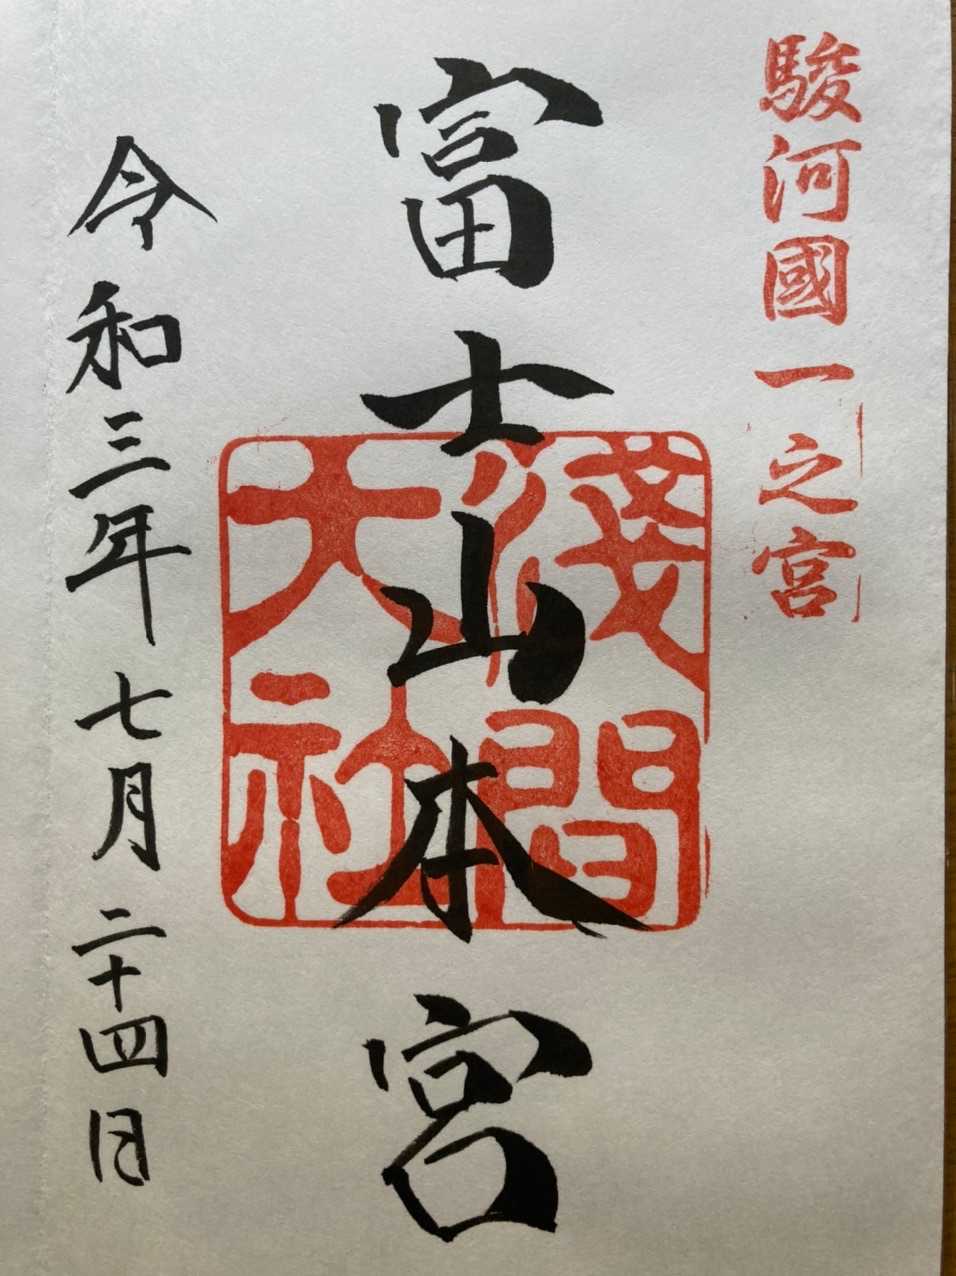 駿河國一之宮
富士山本宮
淺間
大社
令和三年七月二十四日